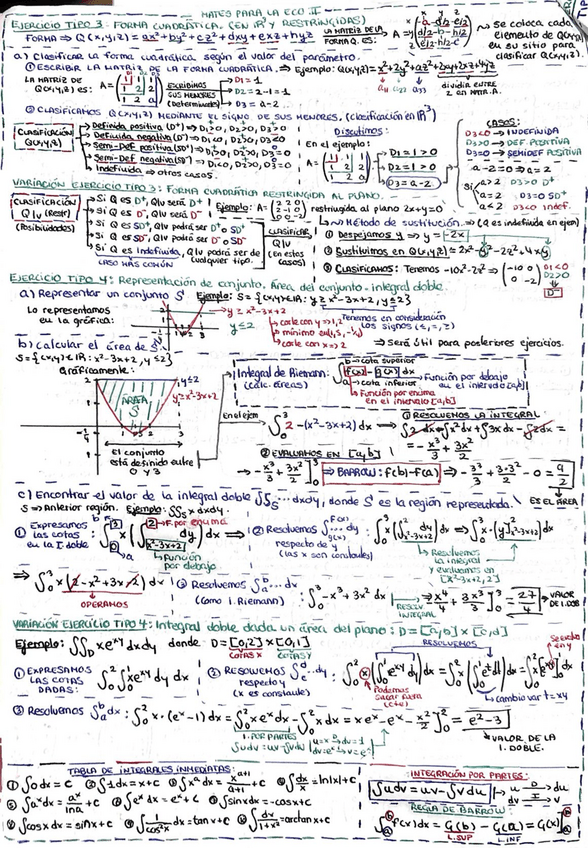 MATES PARA LA ECO II
EJERCICIO TIPO 3: FORMA CUADRÁTICA (EN IR³ Y RESTRINGIDAS)
FORMA ⇒ Q(x,y,z) = ax²+by²+cz²+dxy+exz+hyz LA MATRIZ DE LA FORMA Q. ES:
→ se coloca cada elemento de Q(x,y,z) en su sitio para clasificar Q(x,y,z)
a) Clasificar la forma cuadrática según el valor del parámetro.
① ESCRIBIR LA MATRIZ DE LA FORMA CUADRÁTICA. ⇒ Ejemplo: Q(x,y,z)=x²+2y²+az²+2xy+2xz+4yz
LA MATRIZ DE Q(x,y,z) es: A = (1 1 1 / 1 2 2 / 1 2 a) ESCRIBIMOS SUS MENORES (Determinantes) → D1 = 1
D2 = 2-1 = 1
D3 = a-2
dividir ENTRE 2 EN MATR. A.
② CLASIFICAMOS Q(x,y,z) MEDIANTE EL SIGNO DE SUS MENORES, (clasificación en IR³)
CLASIFICACIÓN Q(x,y,z)
Definida positiva (D⁺) ⇒ D1>0, D2>0, D3>0
Definida negativa (D⁻) ⇒ D1<0, D2>0, D3<0
Semi-Def positiva (SD⁺) ⇒ D1>0, D2>0, D3=0
Semi-Def negativa (SD⁻) ⇒ D1<0, D2>0, D3=0
Indefinida ⇒ otros casos.
Discutimos:
En el ejemplo:
A = (1 1 1 / 1 2 2 / 1 2 a)
D1 = 1 > 0
D2 = 1 > 0
D3 = a-2
CASOS:
D3<0 → INDEFINIDA
D3>0 → DEF. POSITIVA
D3=0 → SEMIDEF POSITIVA
a-2=0 ⇒ a=2
Si a>2 D3>0 D⁺
a=2 D3=0 SD⁺
a<2 D3<0 indef.
VARIACIÓN EJERCICIO TIPO 3: FORMA CUADRÁTICA RESTRINGIDA AL PLANO.
CLASIFICACIÓN Q|v (Restr) (Posibilidades)
Si Q es D⁺, Q|v será D⁺
Si Q es D⁻, Q|v será D⁻
Si Q es SD⁺, Q|v podrá ser D⁺ o SD⁺
Si Q es SD⁻, Q|v podrá ser D⁻ o SD⁻
Si Q es Indefinida, Q|v podrá ser de cualquier tipo.
CASO MÁS COMÚN
CLASIFICAR Q|v (en estos casos)
restringida al plano 2x+y=0
Método de sustitución. ⇒ (Q es indefinida en ejem)
① Despejamos y ⇒ y = -2x
② Sustituimos en Q(x,y,z)
③ Clasificamos: Tenemos -10x²-2z² ⇒ (-10 0 / 0 -2) D1<0 D2>0
D⁻
EJERCICIO TIPO 4: Representación de conjunto, Área del conjunto - integral doble.
a) Representar un conjunto S Ejemplo: S = {(x,y)∈IR: y ≥ x²-3x+2, y ≤ 2}
Lo representamos en la gráfica:
y ≥ x²-3x+2
y ≤ 2
corte con y ⇒ 1,2
mínimo en (1,5, -1/4)
corte con x ⇒ 2
Tenemos en consideración los signos (≤, =, ≥)
⇒ será útil para posteriores ejercicios.
b) calcular el área de S.
S = {(x,y)∈IR: x²-3x+2, y ≤ 2}
Gráficamente:
y ≤ 2
y ≥ x²-3x+2
ÁREA S
El conjunto está definido entre 0 y 3
Integral de Riemann: (calc. áreas)
cota superior
∫ f(x) - g(x) dx
cota inferior
Función por debajo en el intervalo [a,b]
Función por encima en el intervalo [a,b]
en el ejem
∫₀³ 2-(x²-3x+2) dx
① RESOLVEMOS LA INTEGRAL:
∫2dx - ∫x²dx + ∫3xdx - ∫2dx =
= -x³/3 + 3x²/2
② EVALUAMOS EN [a,b]
⇒ -x³/3 + 3x²/2 ]₀³ ⇒ BARROW: f(b)-f(a) ⇒ -3³/3 + 3·3²/2 - 0 = 9/2
ES EL ÁREA
c) Encontrar el valor de la integral doble ∫∫s ... dxdy, donde S es la región representada.
S ⇒ Anterior región. Ejemplo: ∫∫s x dxdy
① Expresamos las cotas en la I. doble
F. por encima
Función por debajo
② Resolvemos ∫ ... dy respecto de y (las x son constantes)
Resolvemos la integral y evaluamos en [x²-3x+2, 2]
⇒ ∫₀³ x(2-x²+3x-2) dx
OPERAMOS
③ Resolvemos ∫ₐᵇ ... dx (como I. Riemann)
∫₀³ -x³+3x² dx
RESOLV. INTEGRAL
-x⁴/4 + 3x³/3 ]₀³ = 27/4 → VALOR DE I. DOB.
VARIACIÓN EJERCICIO TIPO 4: Integral doble dada un área del plano: D = [a,b] x [c,d]
Ejemplo: ∫∫D xeˣʸ dxdy donde D = [0,2] x [0,1]
COTAS X COTAS Y
① EXPRESAMOS LAS COTAS DADAS: ∫₀²∫₀¹ xeˣʸ dy dx
② RESOLVEMOS ∫ ... dy: respecto y (x es constante)
RESOLVEMOS
Podemos sacar fuera (cte)
cambio var t=xy
③ Resolvemos ∫ₐᵇ dx: ∫₀² x·(eˣ-1) dx = ∫₀² xeˣ dx - ∫₀² x dx = xeˣ - eˣ - x²/2 ]₀² = e²-3
I. POR PARTES
∫udv = uv - ∫vdu
u=x → du=1
dv=eˣ → v=eˣ
VALOR DE LA I. DOBLE.
TABLA DE INTEGRALES INMEDIATAS:
① ∫0dx = C ② ∫1dx = x+C ③ ∫xᵃdx = xᵃ⁺¹/a+1 +C ④ ∫dx/x = ln|x|+C
⑤ ∫aˣdx = aˣ/lna +C ⑥ ∫eˣdx = eˣ+C ⑦ ∫sinxdx = -cosx+C
⑧ ∫cosxdx = sinx+C ⑨ ∫1/cos²x dx = tanx+C ⑩ ∫dx/1+x² = arctanx+C
INTEGRACIÓN POR PARTES:
∫udv = uv - ∫vdu
u D→ du
dv I→ v
REGLA DE BARROW:
∫ₐᵇ f(x)dx = G(b) - G(a) = G(x)]ₐᵇ
L.SUP L.INF